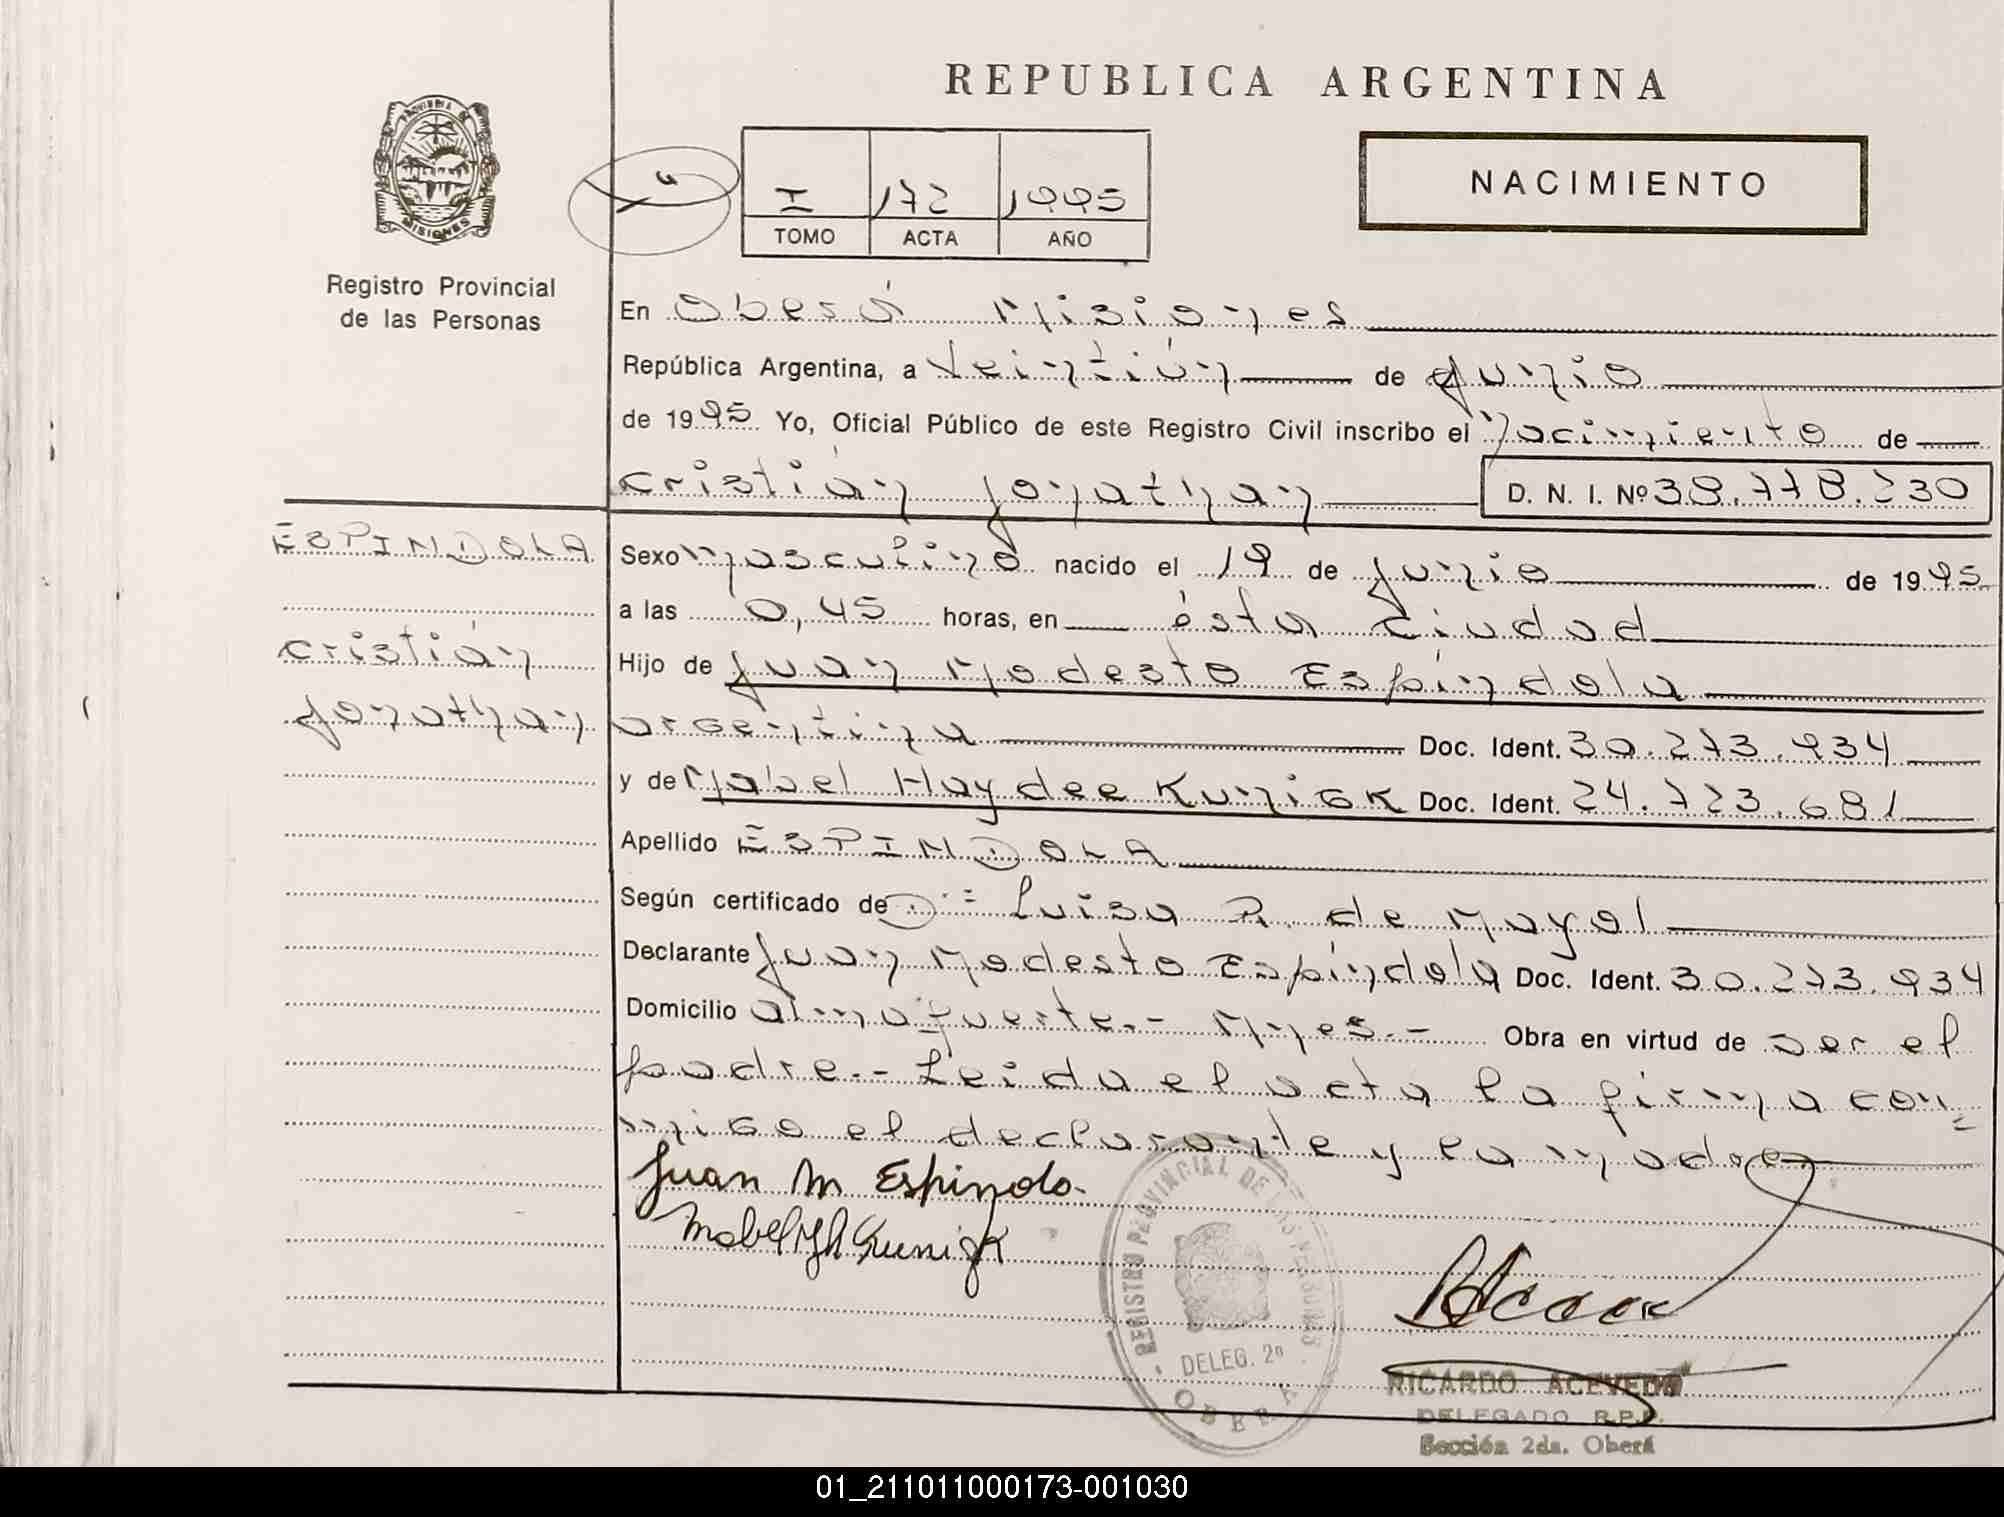 REPUBLICA ARGENTINA
PROVINCIA DE
MISIONES
Registro Provincial
de las Personas
I 172 1995
TOMO ACTA AÑO
NACIMIENTO
En Oberá Misiones
República Argentina, a Veintiún de Junio
de 1995 Yo, Oficial Público de este Registro Civil inscribo el Nacimiento de
Cristián Jonathan D. N. I. Nº 38.778.230
ESPINDOLA
Cristián
Jonathan
Sexo masculino nacido el 19 de Junio de 1995
a las 0,45 horas, en ésta Ciudad
Hijo de Juan Modesto Espíndola
argentina Doc. Ident. 30.273.934
y de Mabel Haydee Kuniak Doc. Ident. 24.723.681
Apellido ESPINDOLA
Según certificado de Dª Luisa R. de Mayol
Declarante Juan Modesto Espíndola Doc. Ident. 30.273.934
Domicilio almafuerte.- Mnes.- Obra en virtud de ser el
padre.- Leida el acta la firma con=
migo el declarante y la madre
Juan M Espindola.
Mabel H Kuniak
REGISTRO PROVINCIAL DE LAS PERSONAS
DELEG. 2ª
OBERA
RICARDO ACEVEDO
DELEGADO R.P.P.
Sección 2da. Oberá
01_211011000173-001030